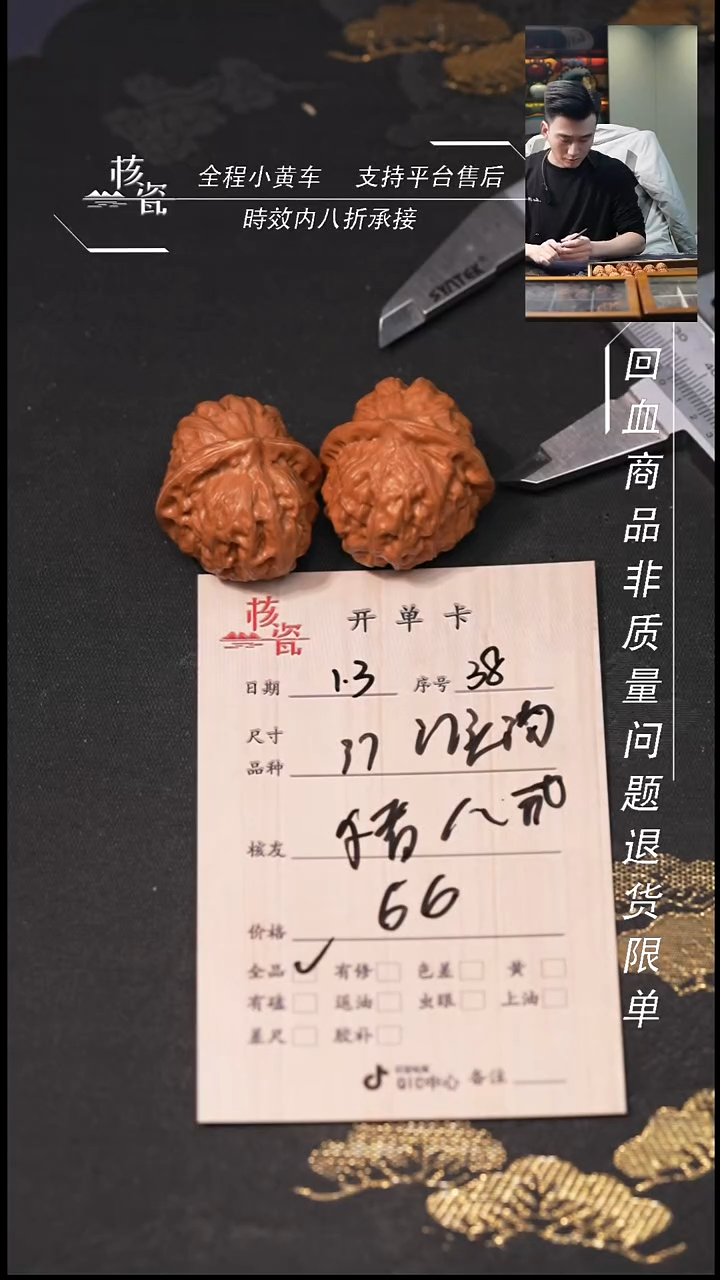 核瓷
全程小黄车 支持平台售后
時效内八折承接
SYNTEK
回血商品非质量问题退货限单
核瓷
开单卡
日期 1.3 序号 38
尺寸
品种 37
核友 猪八戒
价格 66
全品 ✓ 有修 色差 黄
有磕 返油 虫眼 上油
差尺 胶补
QIC中心 备注